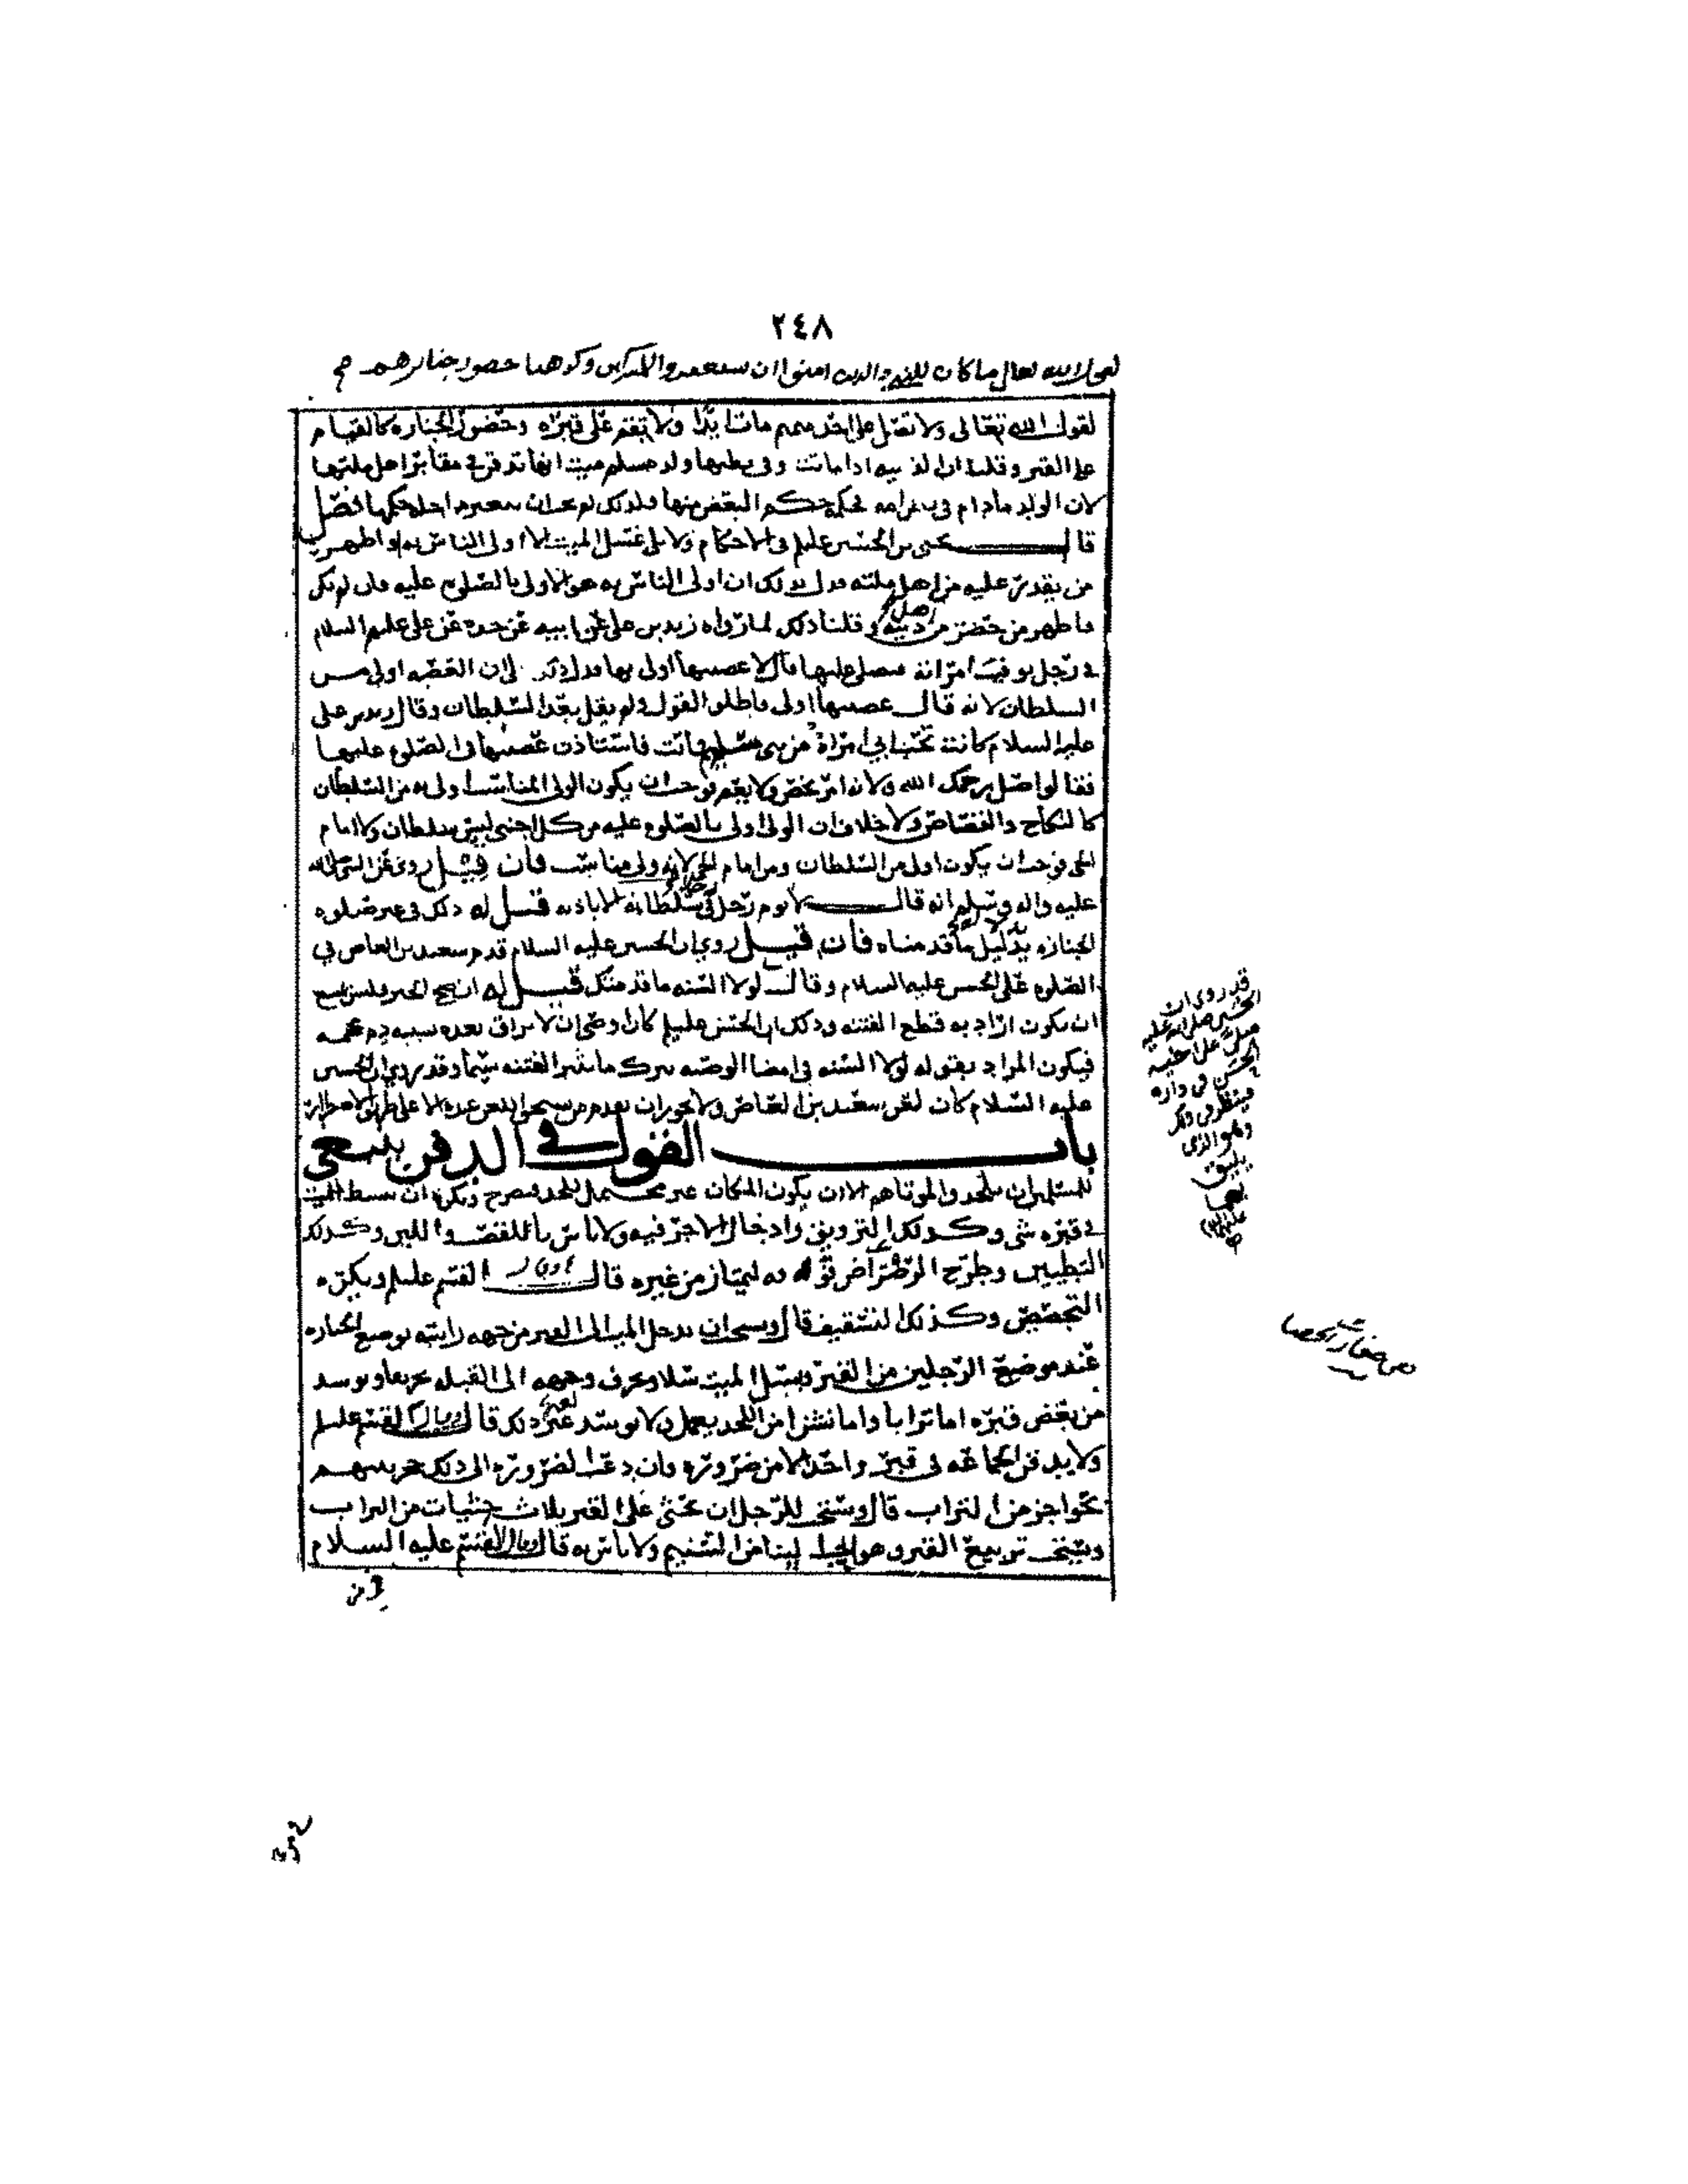 ٢٤٨
لقول الله تعالى ما كان للنبي والذين امنوا ان يستغفروا للمشركين وكرهنا حضور جنائزهم
لقول الله تعالى ولا تصل على احد منهم مات ابدا ولا تقم على قبره وحضور الجنازه كالقيام
على القبر وقلنا ان الذميه اذا ماتت وفي بطنها ولد مسلم ميت انها تدفن في مقابر اهل ملتها
لان الولد مادام في بطن امه فحكمه حكم البعض منها ولذلك لم يجب ان حكمها فصل
قال يحيى بن الحسين عليلم في الاحكام ولا يلي غسل الميت الا اولى الناس به واطهر
من يقدر عليه من اهل ملته فدل بذلك ان اولى الناس به هو الاولى بالصلوه عليه فان لم يكن
فاطهر من حضر من اهل دينه وقلنا ذلك لما رواه زيد بن علي عن ابيه عن جده عن علي عليهم السلام
في رجل توفيت امراته فصلى عليها قال لا عصبتها اولى بها فدل ذلك على ان العصبه اولى من
السلطان لانه قال عصبتها اولى فاطلق القول ولم يقل بعد السلطان وقال زيد بن علي
عليه السلام كانت تحت ابي امراة من بني سليم فماتت فاستاذن عصبتها في الصلوه عليها
فقالوا صل يرحمك الله ولانه امر يخص ولا يعم فوجب ان يكون الولي المناسب اولى به من السلطان
كالنكاح والقصاص ولا خلاف ان الولي اولى بالصلوه عليه من كل اجنبي ليس بسلطان ولا امام
الحي فوجب ان يكون اولى من السلطان ومن امام الحي لانه ولي مناسب فان قيل روي عن النبي صلى الله
عليه واله وسلم انه قال لا يوم رجل في سلطانه الا باذنه قيل له ذلك في غير صلوه
الجنازه بدليل ما قدمناه فان قيل روي ان الحسين عليه السلام قدم سعيد بن العاص في
الصلوه على الحسن عليه السلام وقال لولا السنه ما قدمتك قيل له ان صح الخبر فليس يمتنع
ان يكون اراد به قطع الفتنه وذلك ان الحسن عليلم كان اوصى ان لا يراق بعده بسببه دم محجمه
فيكون المراد بقوله لولا السنه في امضا الوصيه بترك ما يثير الفتنه سيما وقد روي ان الحسين
عليه السلام كان لعن سعيد بن العاص ولا يجوز ان يقدم من يستحق اللعن عنده الا على طريق
باب القول في الدفن ينبغي
للمسلمين ان يلحدوا لموتاهم الا ان يكون المكان غير محتمل للحد فيضرح ويكره ان يبسط للميت
في قبره شي وكذلك التزويق وادخال الاجر فيه ولا باس بالقصب واللبن وكذلك
التطيين وطرح الرضراض فوقه ليمتاز من غيره قال القسم عليلم ويكره
التجصيص وكذلك التسقيف قال ويستحب ان يدخل الميت الى القبر من جهه راسه توضع الجنازه
عند موضع الرجلين من القبر ويسل الميت سلا ويحرف وجهه الى القبله تحريفا ويوسد
من بعض قبره اما ترابا واما نشزا من اللحد يعمل ولا يوسد غير ذلك قال القسم عليلم
ولا يدفن الجماعه في قبر واحد الا من ضروره فان دعت الضروره الى ذلك حجز بينهم
بحواجز من التراب قال ويستحب للرجل ان يحثي على القبر ثلاث حثيات من التراب
ويستحب تربيع القبر وهو احب الينا من التسنيم ولا باس به قال القسم عليه السلام
قد روي ان
الحسين صلى الله عليه
صلى على اخيه
الحسن في داره
فينظر في ذلك
وهو الذي
يليق